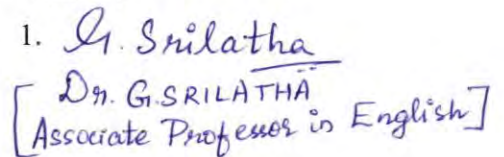 1. G. Srilatha
[Dr. G. SRILATHA
Associate Professor in English]